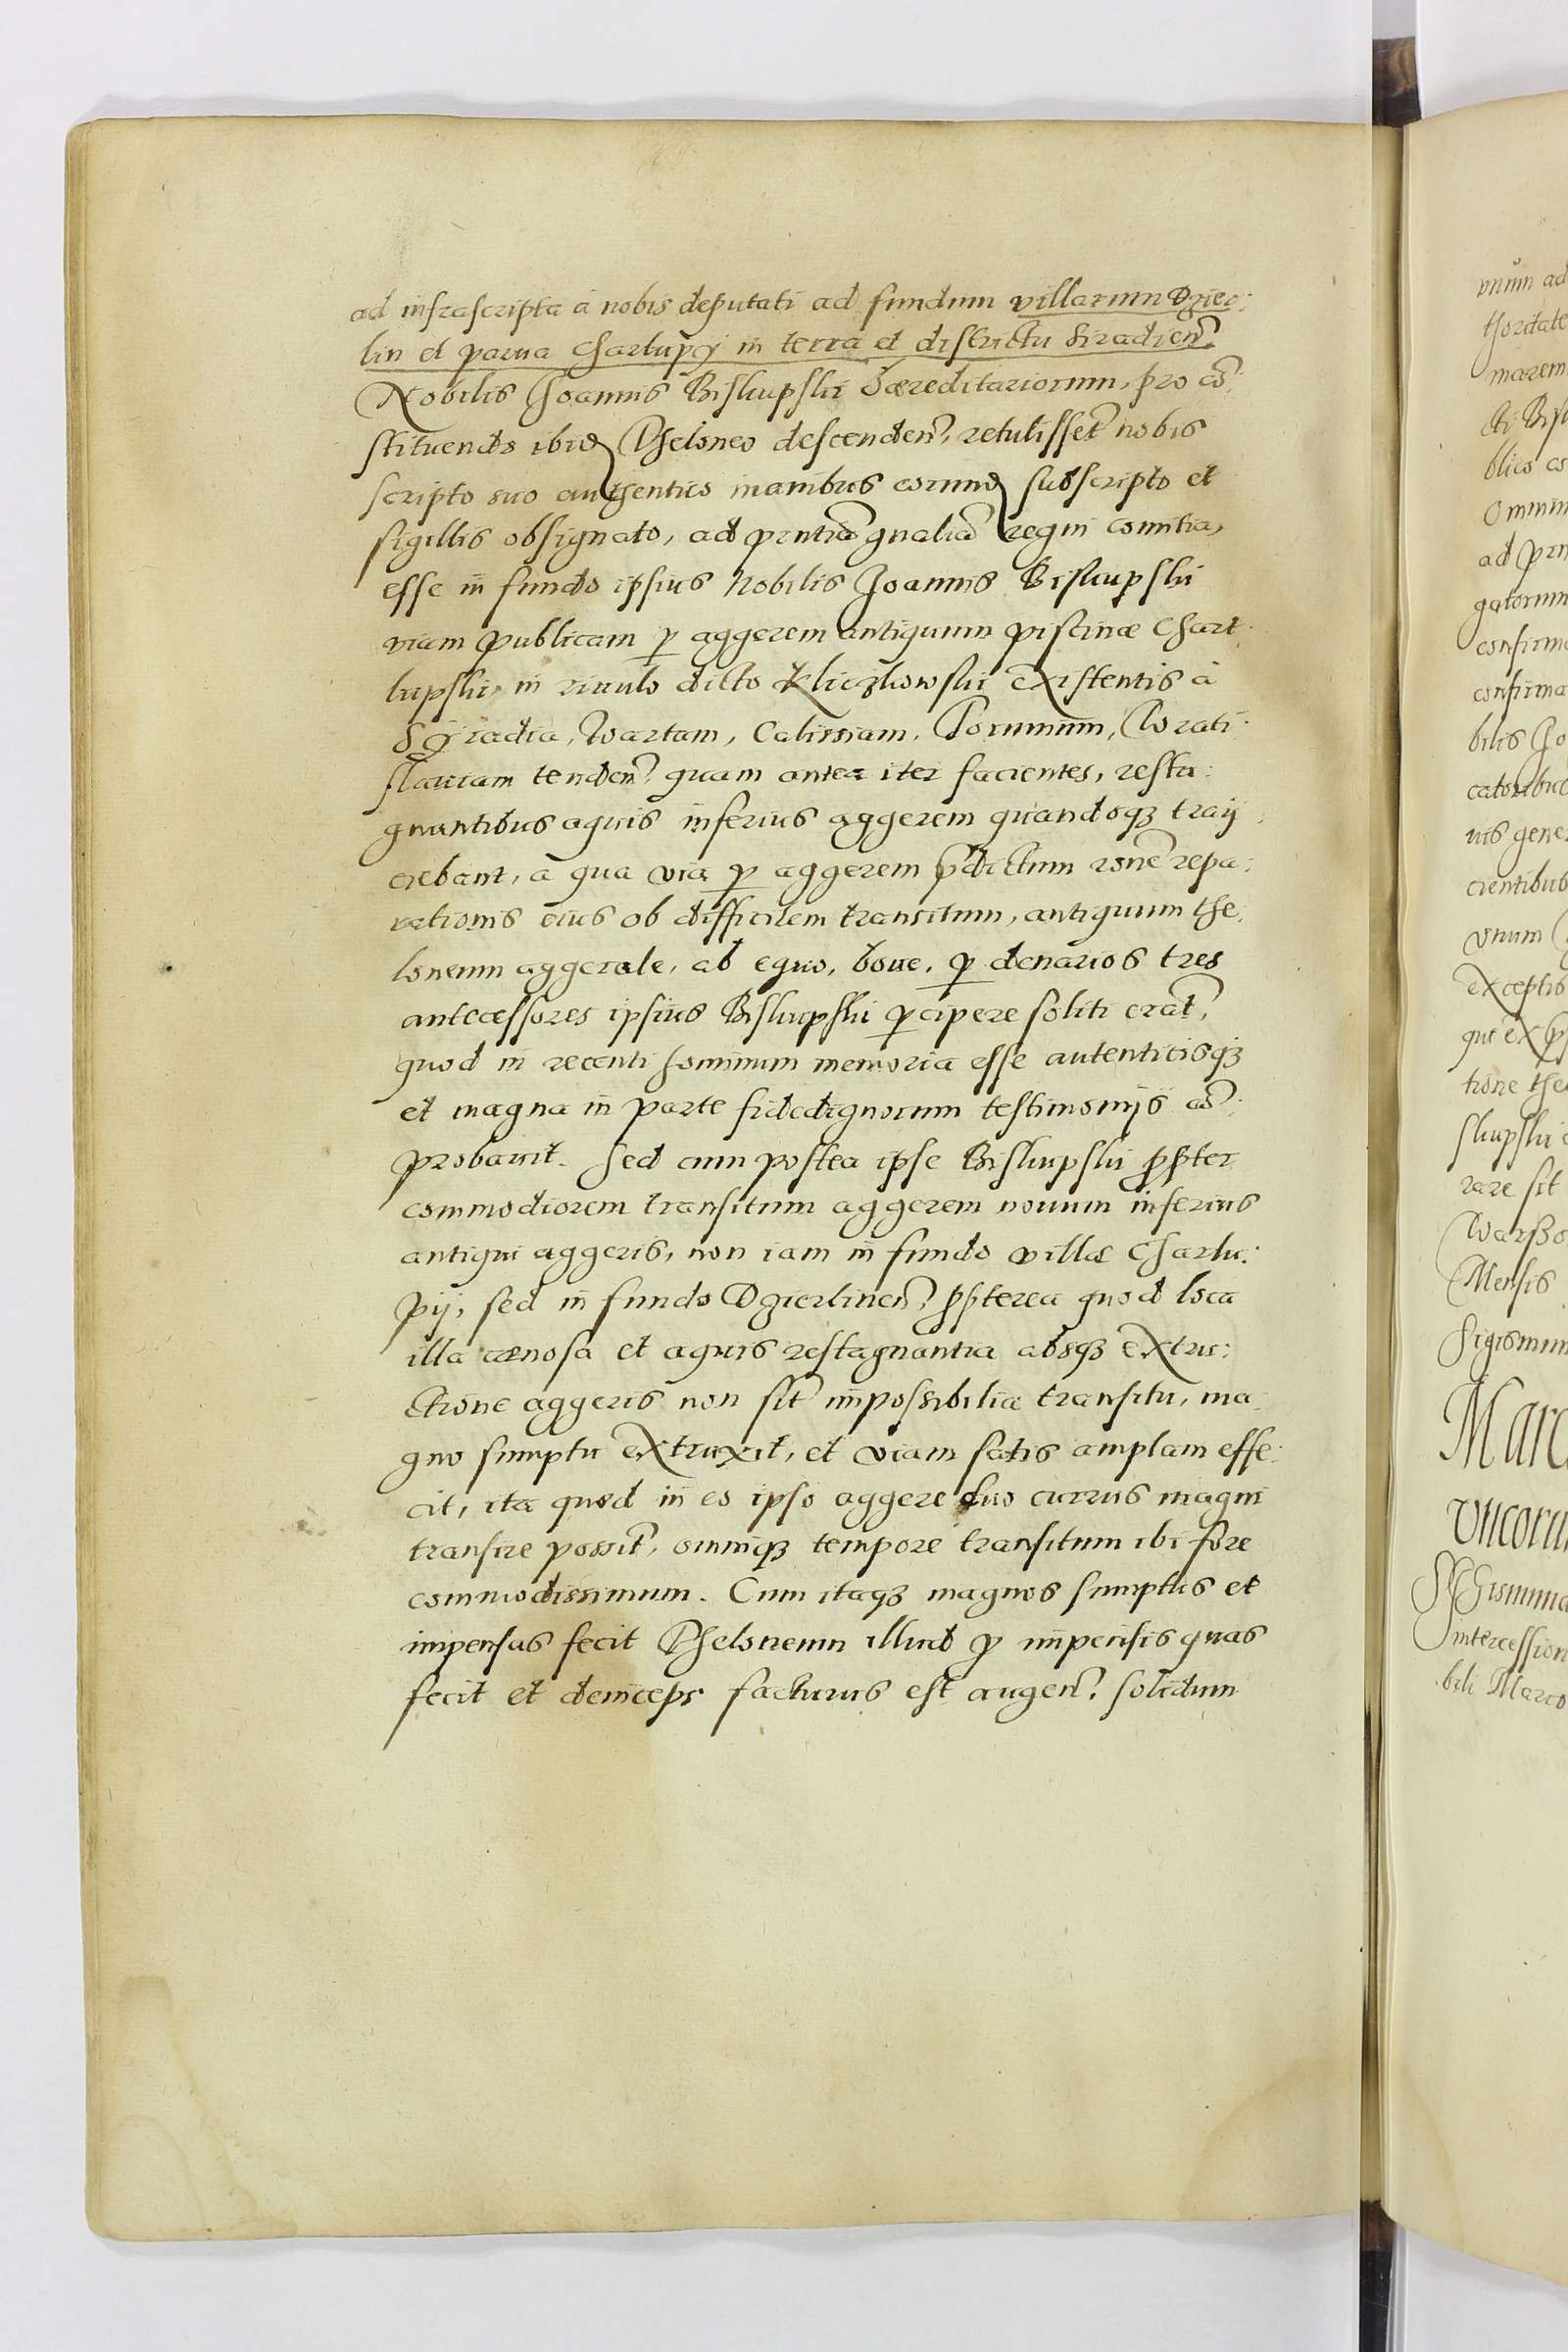 ad infrascripta à nobis deputati ad fundum villarum Dzier:
lin et parua Charlupÿ in terra et districtu Siradien͂
Nobilis Joannis Biskupski hæreditariorum, pro co͂:
stituendo ibid Theloneo descenden͂, retulisset͂ nobis
scripto suo authentico manibus eorund subscripto et
sigillis obsignato, ad pn͂tia g͂nalia regni comitia,
esse in fundo ipsius Nobilis Joannis Biskupski
viam publicam ꝑ aggerem antiquum piscinæ Charl
lupski, in riuulo dicto Kliczkowski existentis à
Sÿradia, Wartam, Calissiam, Torunium, Wrati
slauiam tenden͂, quam antea iter facientes, resta:
gnantibus aquis inferius aggerem quandoqꝫ traij
ciebant, à qua via ꝑ aggerem p͂dictum rone͂ repa:
rationis eius ob difficilem transitum, antiquum the:
loneum aggerale, ab equo, boue, ꝑ denarios tres
antecessores ipsius Biskupski ꝑcipere soliti erat͂,
quod in recenti hominum memoria esse autenticisqꝫ
et magna in parte fidedignorum testimonijs co͂:
probauit. Sed cum postea ipse Biskupski ꝓpter
commodiorem transitum aggerem nouum inferius
antiqui aggeris, non iam in fundo villæ Charlu:
pij, sed in fundo Dzierlinen͂, ꝓpterea quod loca
illa cænosa et aquis restagnantia absqꝫ extru:
ctione aggeris non sit͂ impossibilia transitu, ma
gno sumptu extruxit, et viam satis amplam effe:
cit, ita quod in eo ipso aggere duo currus magni
transire possit͂, omniqꝫ tempore transitum ibi fore
commodissimum. Cum itaqꝫ magnos sumptus et
impensas fecit Theloneum illud ꝑ impensis quas
fecit et deinceps facturus est augen͂, solidum
vnum ad
thoritate
blico
Omnium
ad pn͂
gatorum
confirma
confirma
bilis Jo
catoribus
uis gene
cientibus
vnum
exceptis
qui ex
tione the
skupski
rare sit
Warßo
Mensis
Sigismun
Marc
vncoru
Sigismun
intercession
bili Marco